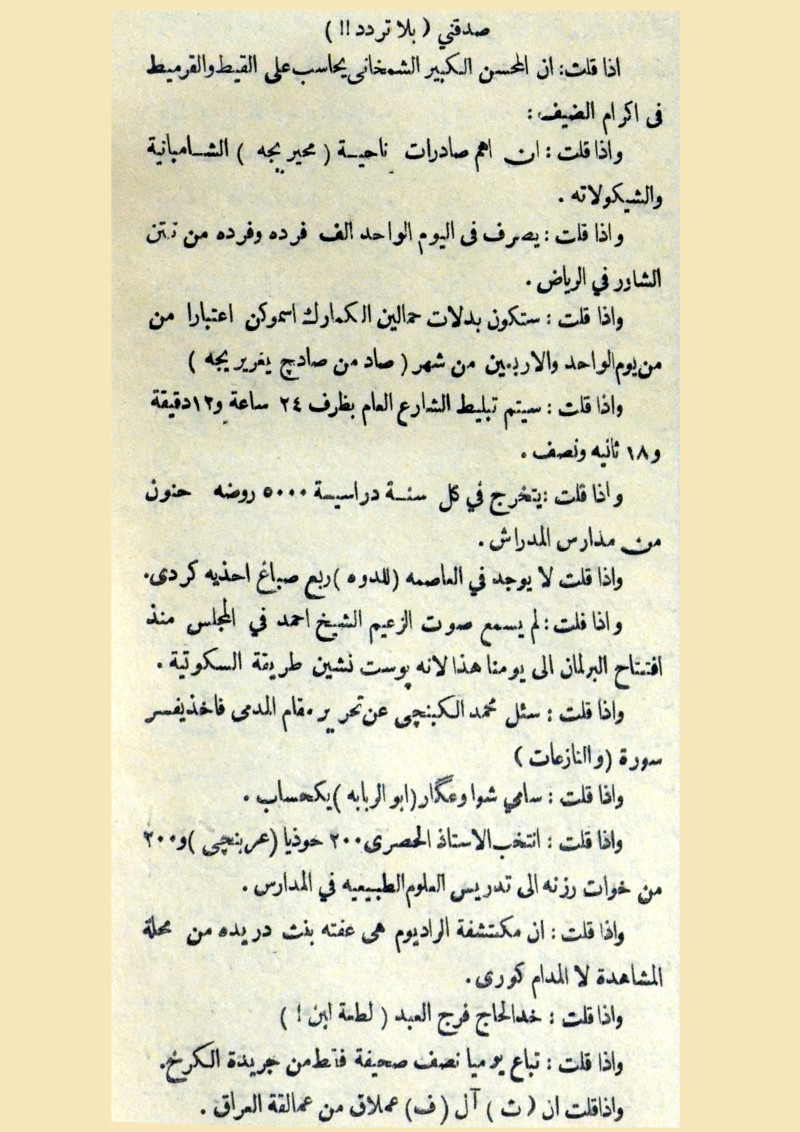 صدقني ( بلا تردد !! )
اذا قلت : ان المحسن الكبير الشمخانى يحاسب على القيط والقرميط
فى اكرام الضيف :
واذا قلت : ان اهم صادرات ناحية ( محيريجه ) الشامبانية
والشيكولاته .
واذا قلت : يصرف فى اليوم الواحد الف فرده وفرده من تتن
الشاور في الرياض .
واذا قلت : ستكون بدلات حمالين الكمارك اسموكن اعتبارا من
من يوم الواحد والاربعين من شهر ( صاد من صادچ يغريريجه )
واذا قلت : سيتم تبليط الشارع العام بظرف ٢٤ ساعة و١٢ دقيقة
و١٨ ثانيه ونصف .
واذا قلت : يتخرج في كل سنة دراسية ٥٠٠٠ روضه خنون
من مدارس المدراش .
واذا قلت لا يوجد في العاصمه ( للدوه ) ربع صباغ احذيه كردى .
واذا قلت : لم يسمع صوت الزعيم الشيخ احمد في المجلس منذ
افتتاح البرلمان الى يومنا هذا لانه پوست نشين طريقة السكوتية .
واذا قلت : سئل محمد الكبنچى عن تحرير مقام المدمى فاخذ يفسر
سورة ( واالنازعات )
واذا قلت : سامي شوا وعگار ( ابو الربابه ) يكحساب .
واذا قلت : انتخب الاستاذ الحصرى ٢٠٠ حوذيا ( عربنچى ) و٢٠٠
من خوات رزنه الى تدريس العلوم الطبيعيه في المدارس .
واذا قلت : ان مكتشفة الراديوم هى عفته بنت دريده من محلة
المشاهدة لا المدام كورى .
واذا قلت : خد الحاج فرج العبد ( لطعة ابن ! )
واذا قلت : تباع يوميا نصف صحيفة فقط من جريدة الكرخ .
واذا قلت ان ( ث ) آل ( ف ) عملاق من عمالقة العراق .